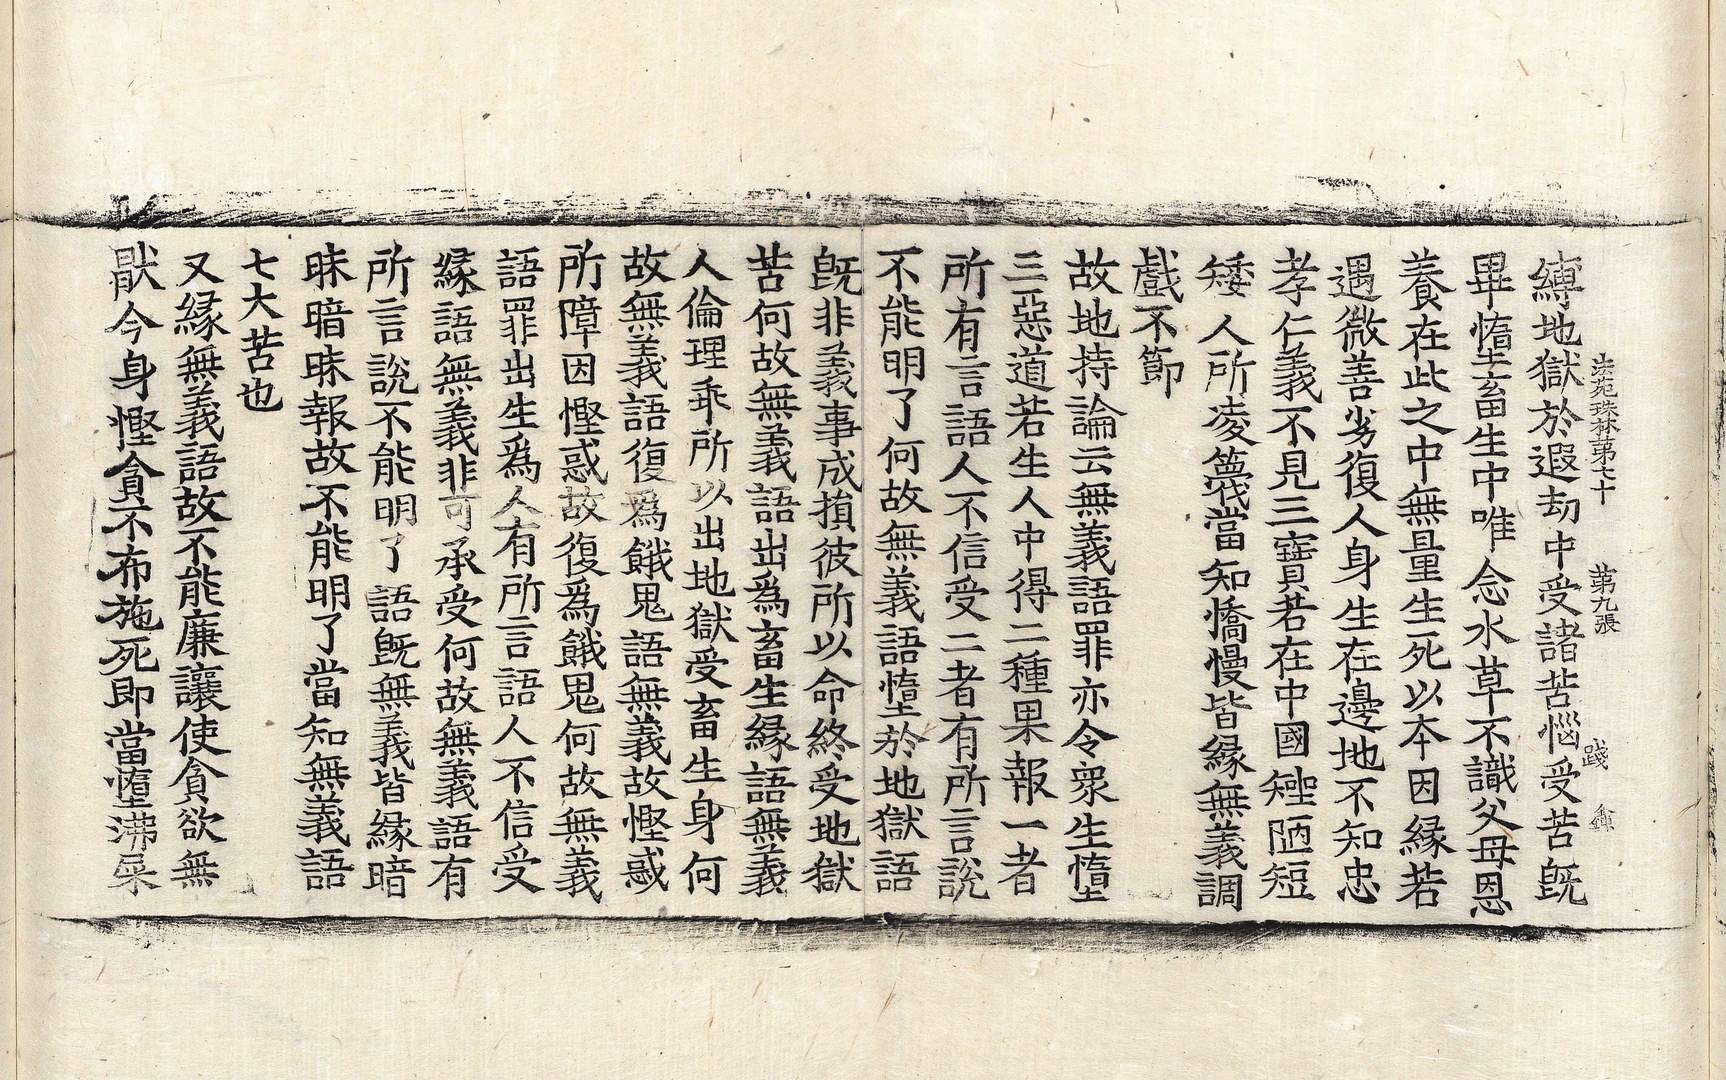 法苑珠林第七十　第九張　踐
縛地獄於遐劫中受諸苦惱受苦旣
畢墮畜生中唯念水草不識父母恩
養在此之中無量生死以本因緣若
遇微善劣復人身生在邊地不知忠
孝仁義不見三寳若在中國矬陋短
矮人所凌篾當知憍慢皆緣無義調
戲不節
故地持論云無義語罪亦令衆生墮
三惡道若生人中得二種果報一者
所有言語人不信受二者有所言說
不能明了何故無義語墮於地獄語
旣非義事成損彼所以命終受地獄
苦何故無義語出爲畜生緣語無義
人倫理乖所以出地獄受畜生身何
故無義語復爲餓鬼語無義故慳惑
所障因慳惑故復爲餓鬼何故無義
語罪出生爲人有所言語人不信受
緣語無義非可承受何故無義語有
所言說不能明了語旣無義皆緣暗
昧暗昧報故不能明了當知無義語
七大苦也
又緣無義語故不能廉讓使貪欲無
猒今身慳貪不布施死即當墮沸屎